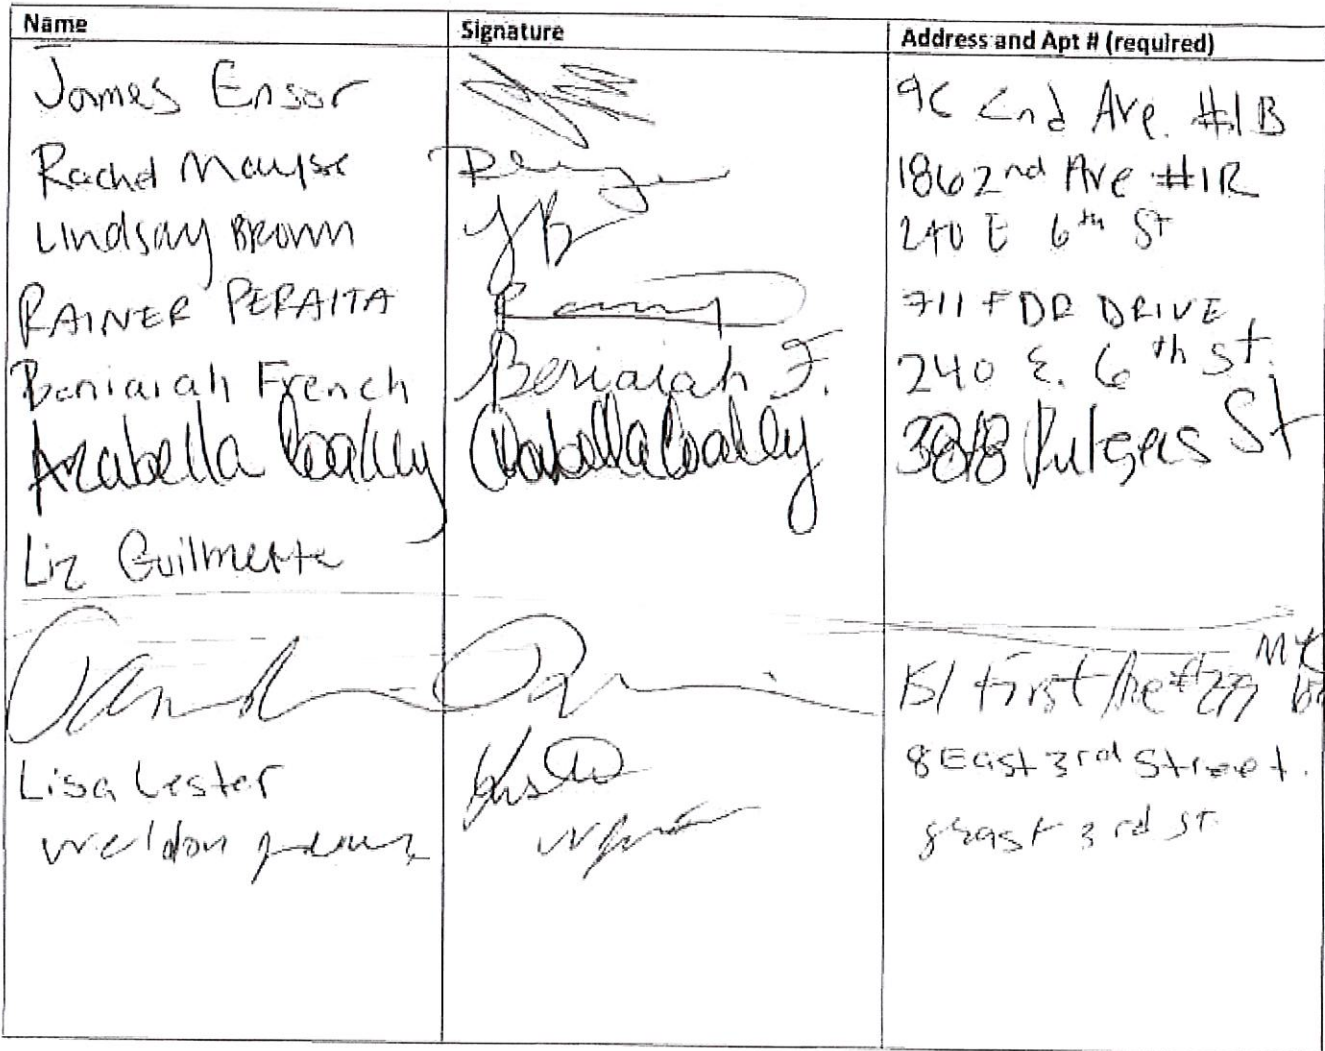 Name Signature Address and Apt # (required)
James Ensor 9C 2nd Ave. #1B
Rachel 186 2nd Ave #1R
Lindsay Brown LB 240 E 6th St
RAINER PERALTA 711 FDR DRIVE
Beniaiah French Beniaiah F. 240 E. 6th St.
Arabella Coakley Arabella Coakley Rutgers St
Liz Guilmette
151 First Ave #29
Lisa Lester 8 East 3rd Street.
Weldon 8 East 3rd St.